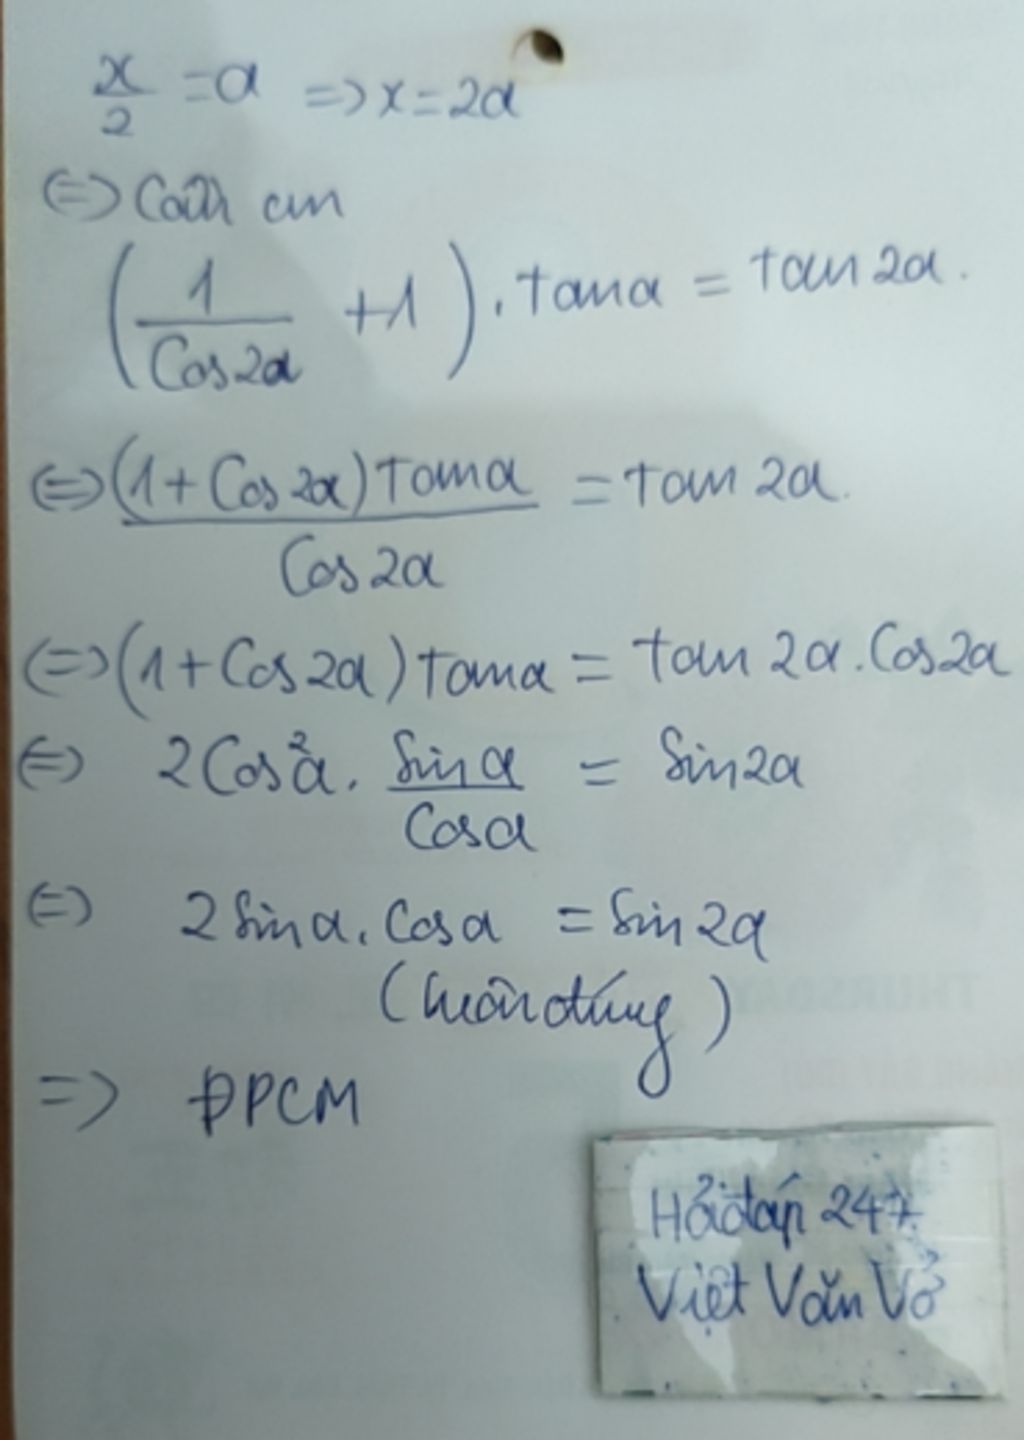 x/2 = α => x = 2α
<=> Cần cm
(1/Cos2α + 1) . tanα = tan 2α .
<=> (1 + Cos 2α) tanα / Cos 2α = tan 2α .
<=> (1 + Cos 2α) tanα = tan 2α . Cos 2α
<=> 2 Cos²α . Sin α / Cos α = Sin 2α
<=> 2 Sin α . Cos α = Sin 2α
(luôn đúng)
=> ĐPCM
Hỏi đáp 247
Việt Văn Vở